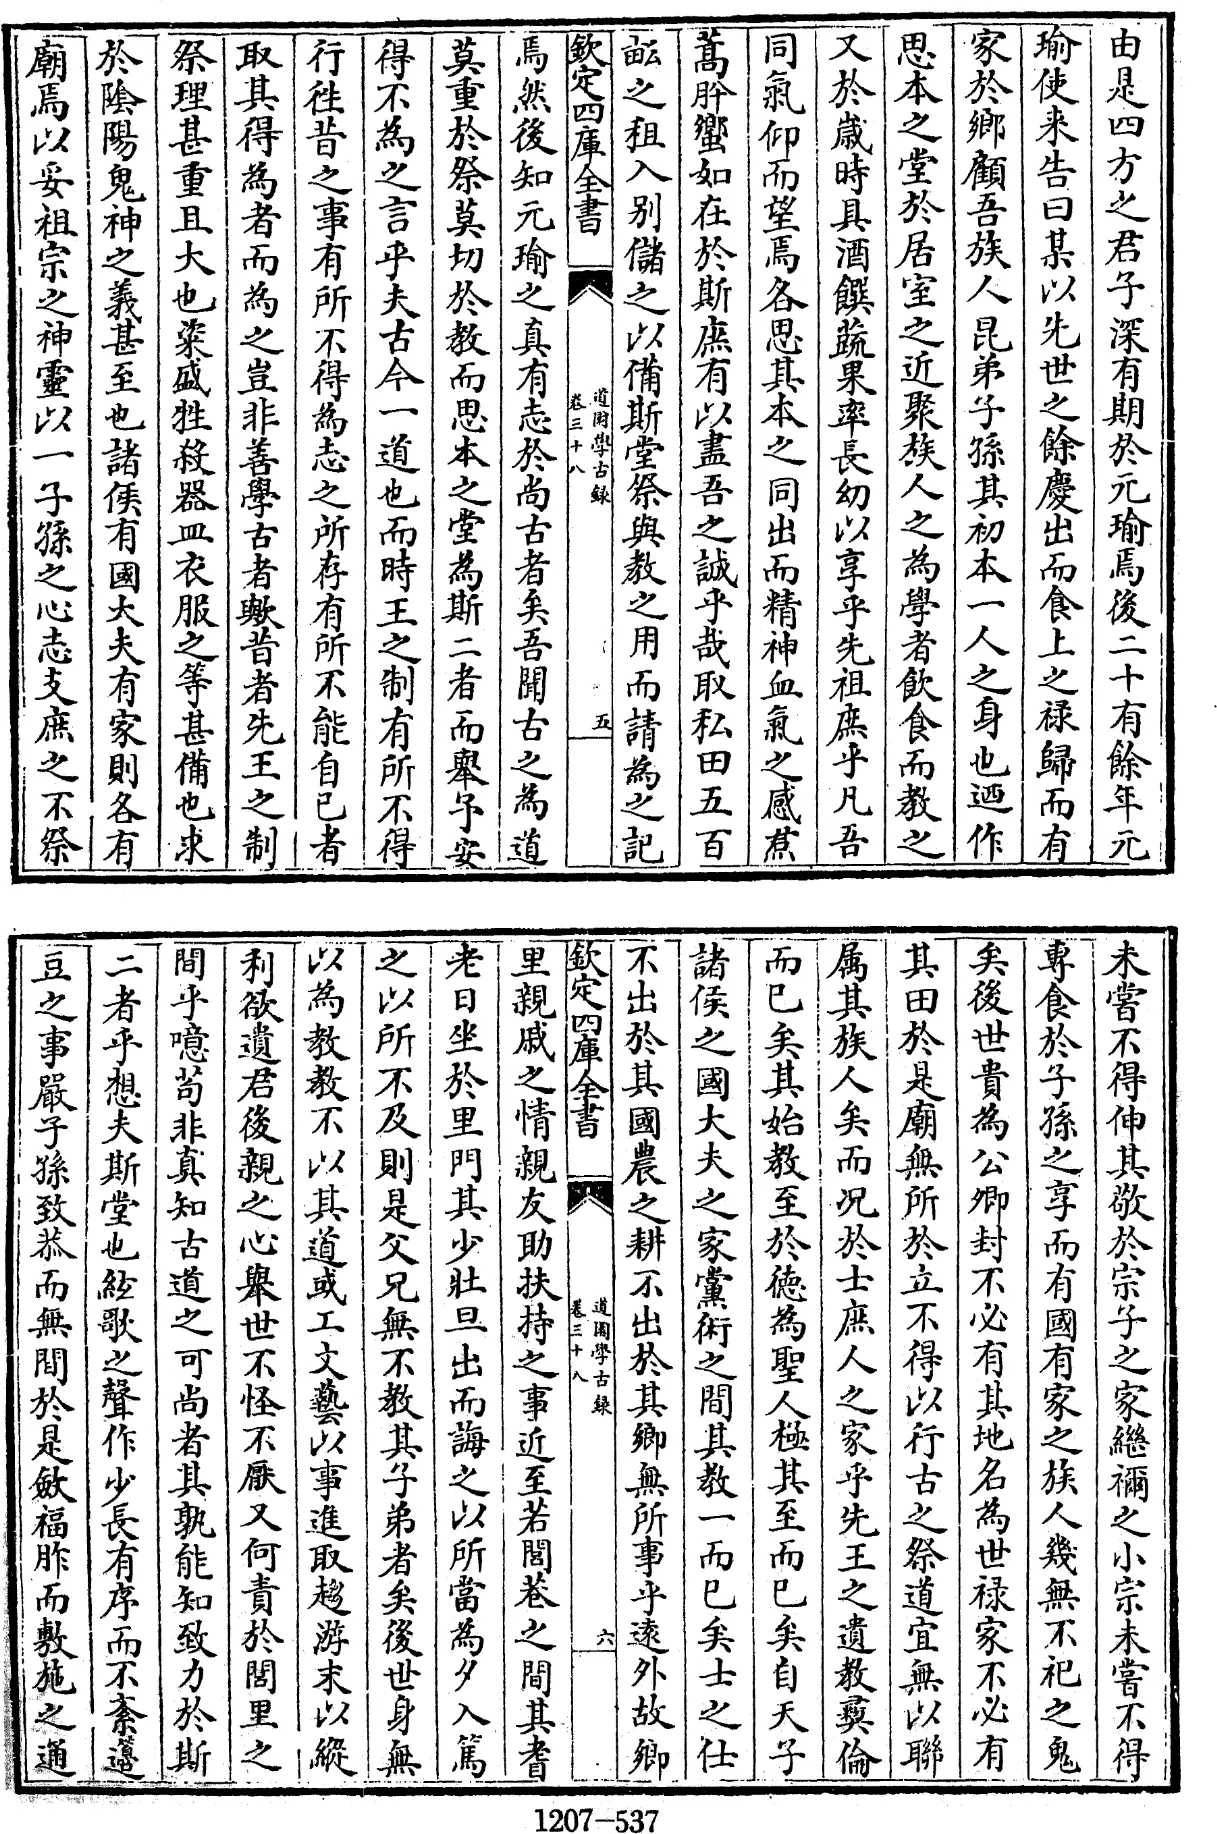 由是四方之君子深有期於元瑜焉後二十有餘年元
瑜使来告曰某以先世之餘慶出而食上之禄歸而有
家於鄉顧吾族人昆弟子孫其初本一人之身也迺作
思本之堂於居室之近聚族人之為學者飲食而教之
又於嵗時具酒饌蔬果率長幼以享乎先祖庶乎凡吾
同氣仰而望焉各思其本之同出而精神血氣之感焄
蒿肸蠁如在於斯庶有以盡吾之誠乎哉取私田五百
畝之租入别儲之以備斯堂祭與教之用而請為之記
欽定四庫全書
道園學古録
卷三十八
五
焉然後知元瑜之真有志於尚古者矣吾聞古之為道
莫重於祭莫切於教而思本之堂為斯二者而舉予安
得不為之言乎夫古今一道也而時王之制有所不得
行徃昔之事有所不得為志之所存有所不能自已者
取其得為者而為之豈非善學古者歟昔者先王之制
祭理甚重且大也粢盛牲殺器皿衣服之等甚備也求
於陰陽鬼神之義甚至也諸侯有國大夫有家則各有
廟焉以妥祖宗之神靈以一子孫之心志支庶之不祭
未嘗不得伸其敬於宗子之家繼禰之小宗未嘗不得
專食於子孫之享而有國有家之族人幾無不祀之鬼
矣後世貴為公卿封不必有其地名為世禄家不必有
其田於是廟無所於立不得以行古之祭道宜無以聯
属其族人矣而况於士庶人之家乎先王之遺教彛倫
而已矣其始教至於徳為聖人極其至而已矣自天子
諸侯之國大夫之家黨術之間其教一而已矣士之仕
不出於其國農之耕不出於其鄉無所事乎逺外故鄉
欽定四庫全書
道園學古録
卷三十八
六
里親戚之情親友助扶持之事近至若閭巷之間其耆
老日坐於里門其少壯旦出而誨之以所當為夕入篤
之以所不及則是父兄無不教其子弟者矣後世身無
以為教教不以其道或工文藝以事進取趨游末以縱
利欲遺君後親之心舉世不怪不厭又何責於閭里之
間乎噫茍非真知古道之可尚者其孰能知致力於斯
二者乎想夫斯堂也絃歌之聲作少長有序而不紊籩
豆之事嚴子孫致恭而無間於是斂福胙而敷施之通
1207—537